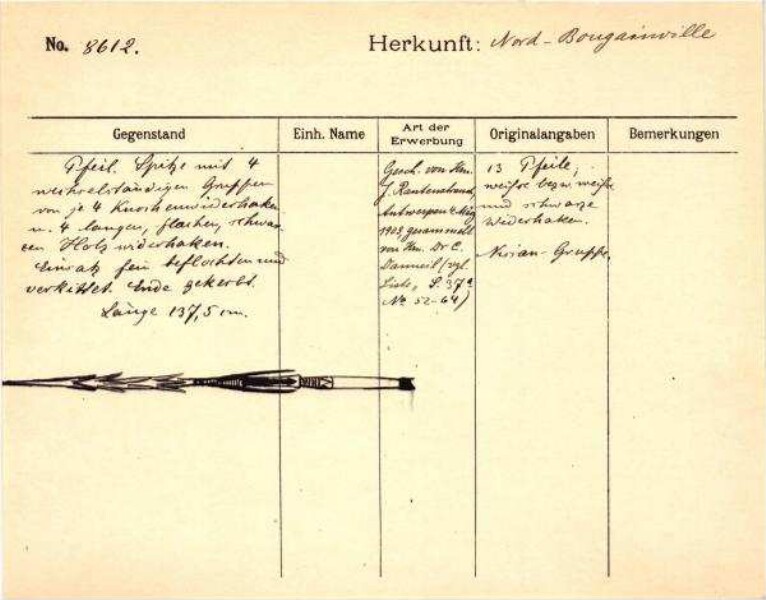 No. 8612.
Herkunft: Nord-Bougainville
Gegenstand
Einh. Name
Art der Erwerbung
Originalangaben
Bemerkungen
Pfeil. Spitze mit 4
wechselständigen Gruppen
von je 4 Knochenwiderhaken
u. 4 langen, flachen, schwar-
zen Holzwiderhaken.
Einsatz fein beflochten und
verkittet. Ende gekerbt.
Länge 137,5 cm.
Gesch. von Hrn.
J. Rautenstrauch,
Antwerpen 4. März
1903, gesammelt
von Hrn. Dr C.
Danneil (vgl.
Liste, S. 37a
No 52-64)
13 Pfeile,
weiße bezw. weiße
und schwarze
Widerhaken.
Nissan-Gruppe.